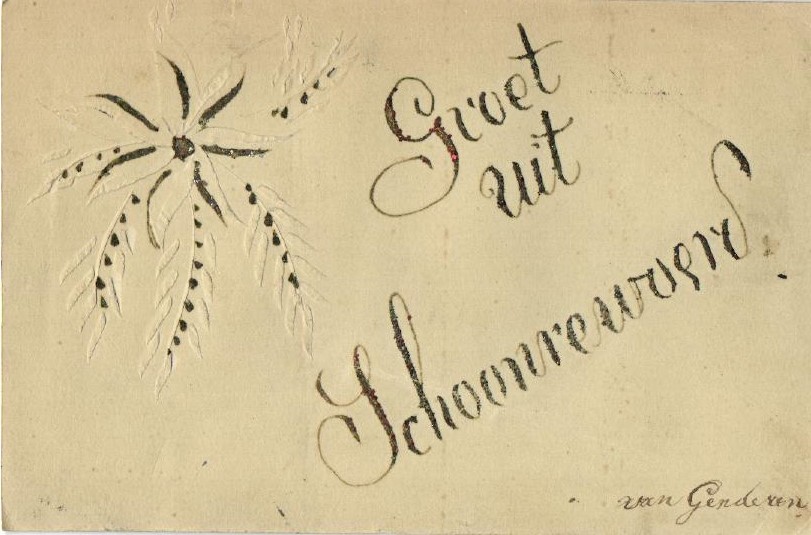 Groet
uit
Schoonrewoerd.
van Genderen